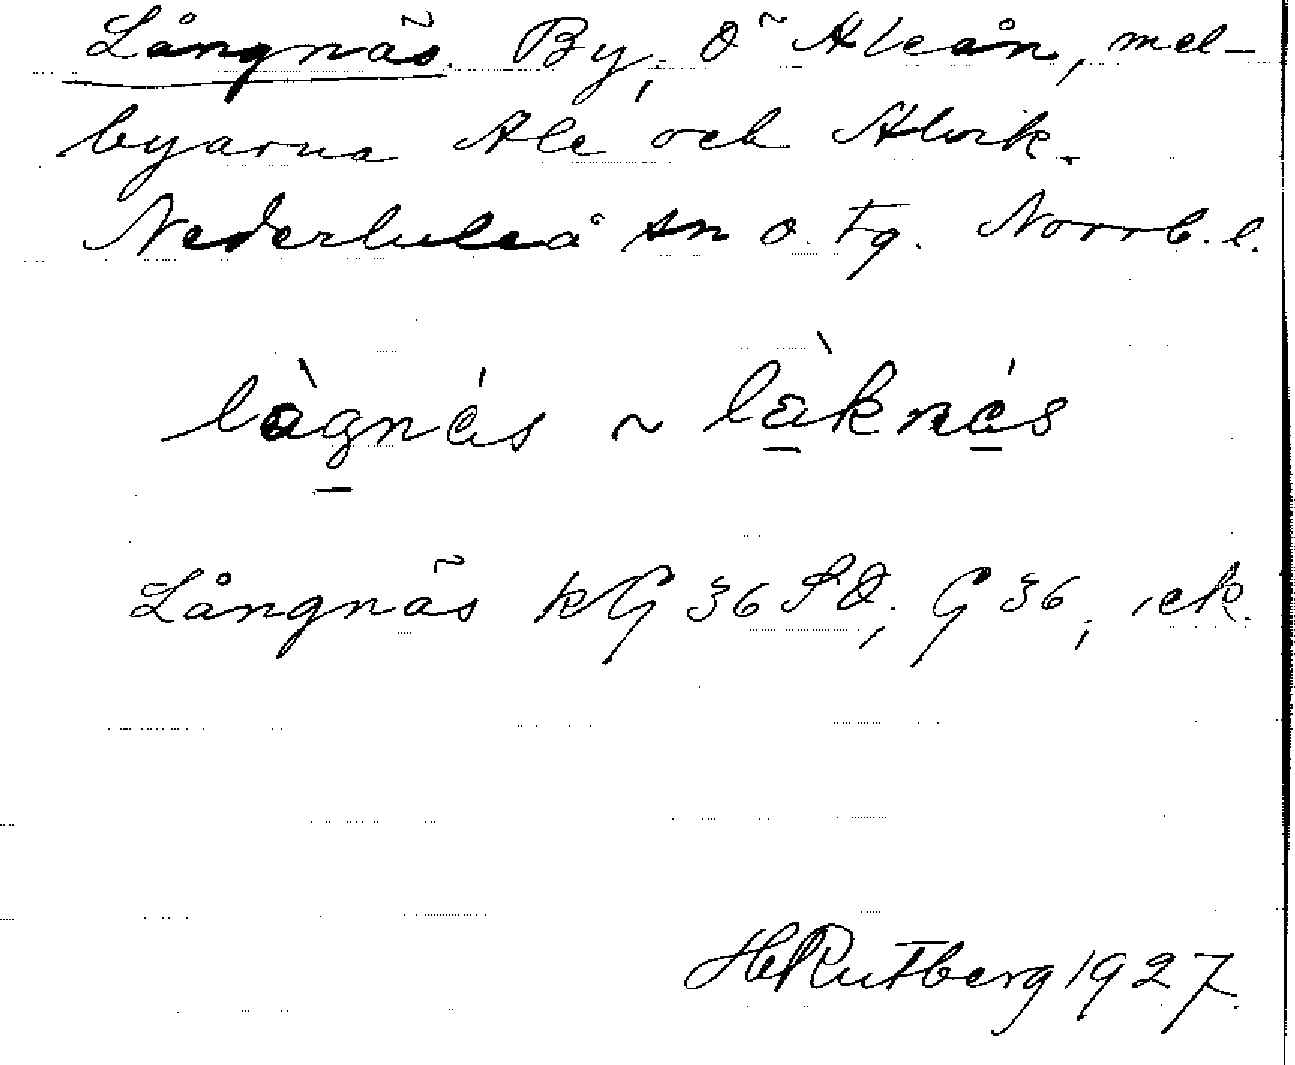 Långnäs. By, Ö Aleån, mel-
byarna Ale och Alvik.
Nederluleå sn o. tg. Norrb. l.
Långnäs kG 36 SO, G 36, ek.
HRutberg 1927.